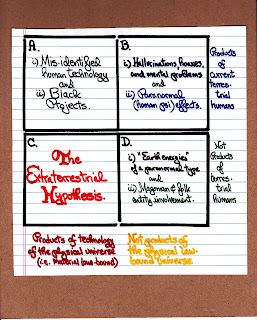 A.
i) Mis-identified
human technology
and
ii) Black
Projects.
B.
i) Hallucinations, hoaxes,
and mental problems
and
ii) Paranormal
(human psi) effects.
Products
of
current
terres-
trial
humans
C.
The
Extraterrestrial
Hypothesis.
D.
i) "Earth energies"
of a paranormal type
and
ii) Magonian & folk
entity involvement.
Not
Products
of
terres-
trial
humans
Products of technology
of the physical universe
(i.e. Material law-bound)
Not products of
the physical law-
bound Universe